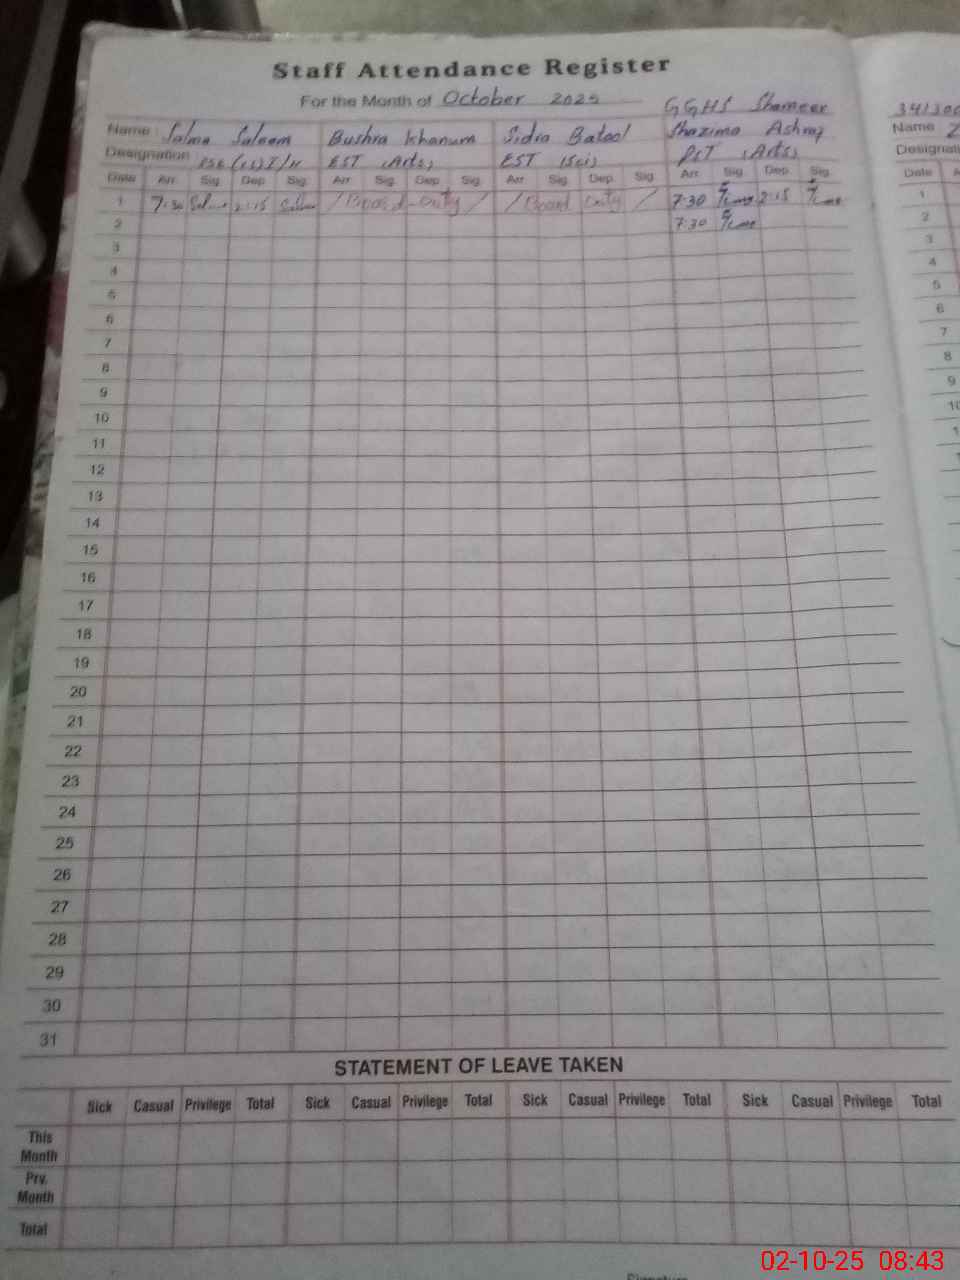 Staff Attendance Register
For the Month of October 2025
GGHS Shameer
Name : Salma Saleem Bushra Khanum Sidra Batool Shazima Ashraf
Designation EST (Arts) EST (Sci) PST (Arts)
Date Arr Sig Dep Sig Arr Sig Dep Sig Arr Sig Dep Sig Arr Sig Dep Sig
1 7:30 Salma 2:15 Salma / Board Duty / / Board Duty / 7:30 2:15
2 7:30
3
4
5
6
7
8
9
10
11
12
13
14
15
16
17
18
19
20
21
22
23
24
25
26
27
28
29
30
31
STATEMENT OF LEAVE TAKEN
Sick Casual Privilege Total Sick Casual Privilege Total Sick Casual Privilege Total Sick Casual Privilege Total
This
Month
Prv.
Month
Total
Name
Date
1
2
3
4
5
6
7
8
9
02-10-25 08:43